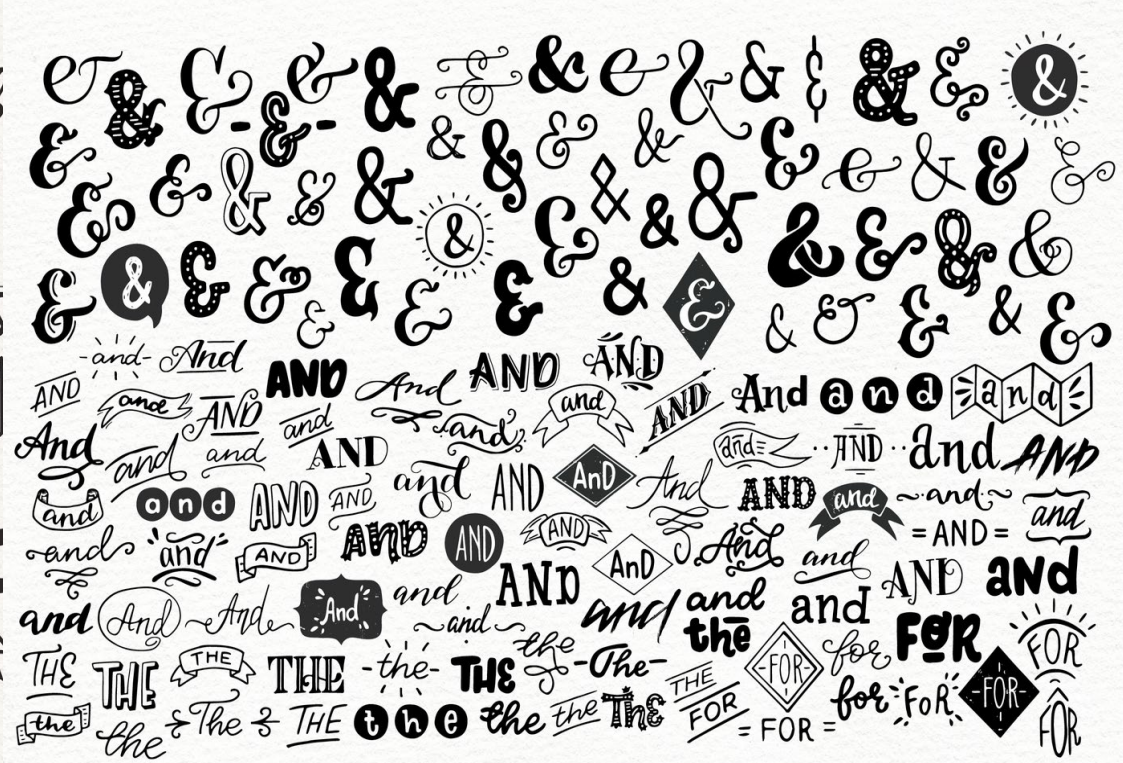 & & & & & & & & & & & & & & &
& & & & & & & & & & & & & & & & &
& & & & & & &
& & & & & & & & & & & & & & &
-and- And AND
AND and AND AND And AND and AND And and and
And and and and AND and and AND and AND
and and AND AND and AND AnD And AND and ~and~ and
and and AND AND AND AND AnD And and =AND= AND
and And And And and and AND and and and and
THE THE THE THE -the- THE the -The- the -FOR- for FOR FOR
the the The THE the the the The THE FOR =FOR= for FOR -FOR- FOR